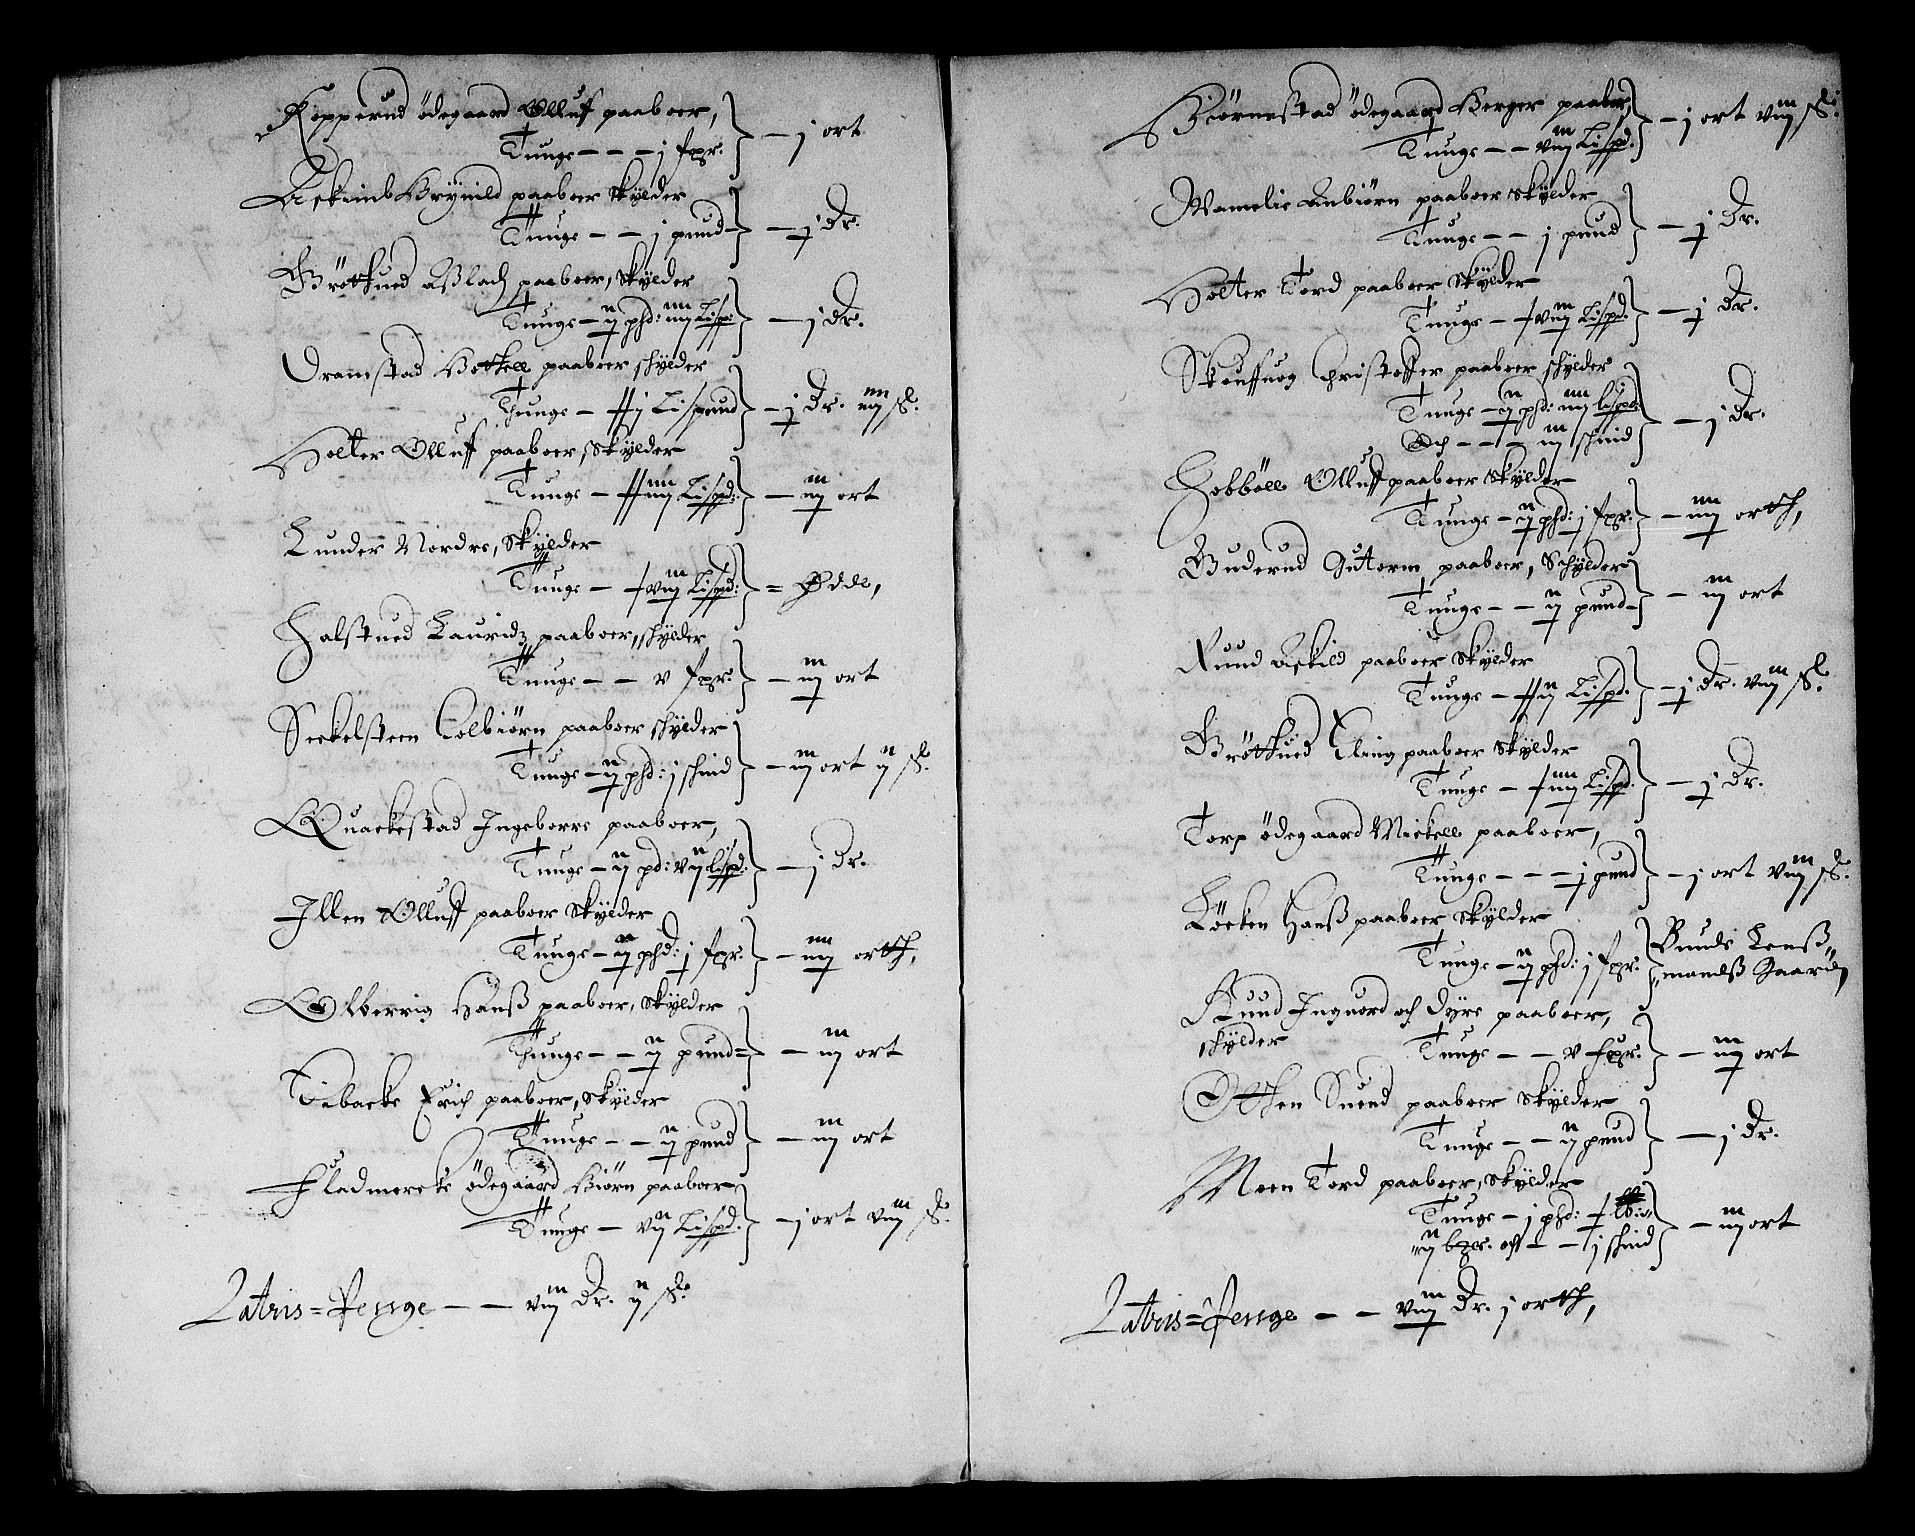 Kopperud ödegaard Olluf paaboer,
Tunge - - - j fxr. - j ort
Askimb Brynild paaboer Skÿlder
Tunge - - j pund - j Dr.
Gröttued Asslach paaboer, Skÿlder
Tunge - ij phd: iiij Lispd: - j Dr.
Dramstad Bottell paaboer schÿlder
Thunge - Lispund - j Dr. iiij sk.
Holter Olluff paaboer, Skÿlder
Tunge - iiij Lispd: - iij ort
Lunder Nordre, Skÿlder
Tunge - viij Lispd: = Øde,
Halstued Lauridz paaboer, schÿlder
Tunge - - v fxr. - iij ort
Seekelsteen Colbiörn paaboer schÿlder
Tunge - ij phd: j schind - iij ort ij sk.
Quackestad Ingeborre paaboer,
Tunge - ij pd: vij lispd: - j Dr.
Illen Olluff paaboer Skÿlder
Tunge - ij phd: j fxr. - iiij orth,
Olberrig Hanß paaboer, Skÿlder
Thunge - - ij pund - iij ort
Tibacke Erich paaboer, Skÿlder
Tunge - - ij pund - iij ort
Fladmercke ödegaard Biörn paaboer
Tunge - vij Lispd. - j ort viij sk.
Latris = Penge - - viij Dr. ij sk.
Biörnestad ödegaard Berger paaboer
Tunge - - viij Lispd. - j ort viij sk.
Wamelie Anbiörn paaboer Skÿlder
Tunge - - j pund - j Dr.
Holter Tord paaboer Skÿlder
Tunge - viij Lispd. - j Dr.
Skouffuog Christoffer paaboer schÿlder
Tunge - ij phd: iiij lispd:
Och - - - iij schind - j Dr.
Hobböll Olluff paaboer Skÿlder
Tunge - ij phd: j fxr. - iiij orth,
Buderud Gutorm paaboer, Schÿlder
Tunge - - ij pund - iij ort
Ruud Askild paaboer Skÿlder
Tunge - ij Lispd. - j Dr. viij sk.
Gröttued Elling paaboer Skÿlder
Tunge - iiij Lispd. - j Dr.
Torp ödegaard Mickell paaboer,
Tunge - - - j pund - j ort viij sk.
Löcken Hanß paaboer Skÿlder
Tunge - ij phd: j fxr. Bunde Lenß„
„mandß Gaard
Ruud Inguord och Dyre paaboer,
schÿlder Tunge - - v fxr. - iij ort
Otthen Suend paaboer Skÿlder
Tunge - - ij pund - j Dr.
Moen Tord paaboer, Skÿlder
Tunge - j phd:
ij bxr. och - - j schind - iij ort
Latris = Penge - - viij Dr. j orth,